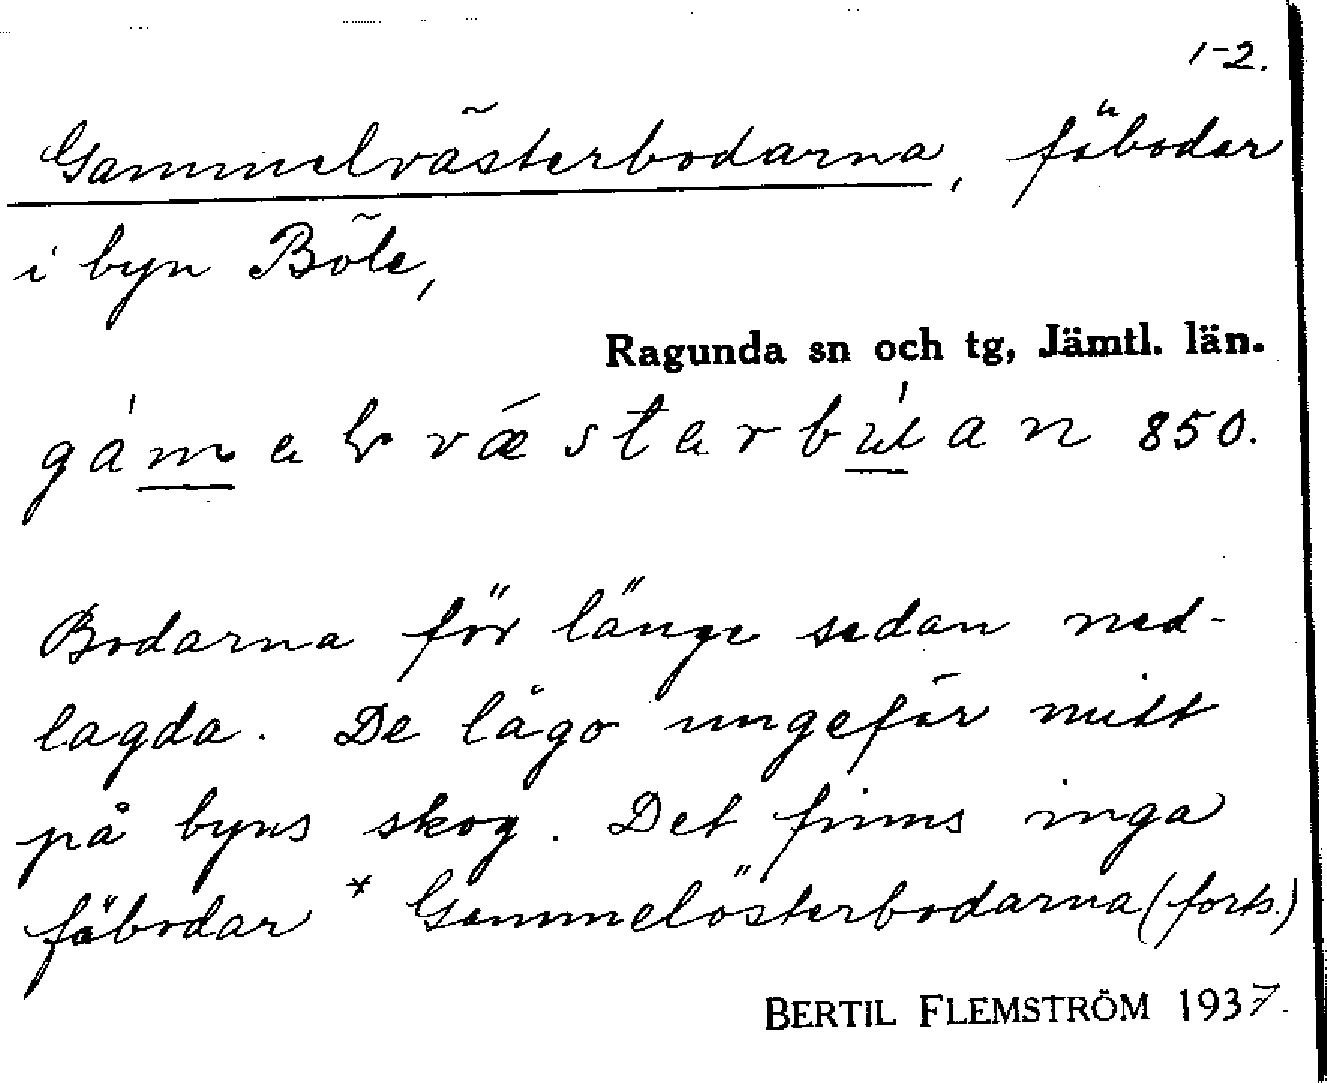 1-2.
Gammelvästerbodarna, fäbodar
i byn Böle,
Ragunda sn och tg, Jämtl. län.
850.
Bodarna för länge sedan ned-
lagda. De lågo ungefär mitt
på byns skog. Det finns inga
fäbodar * Gammelösterbodarna (forts.)
BERTIL FLEMSTRÖM 1937.